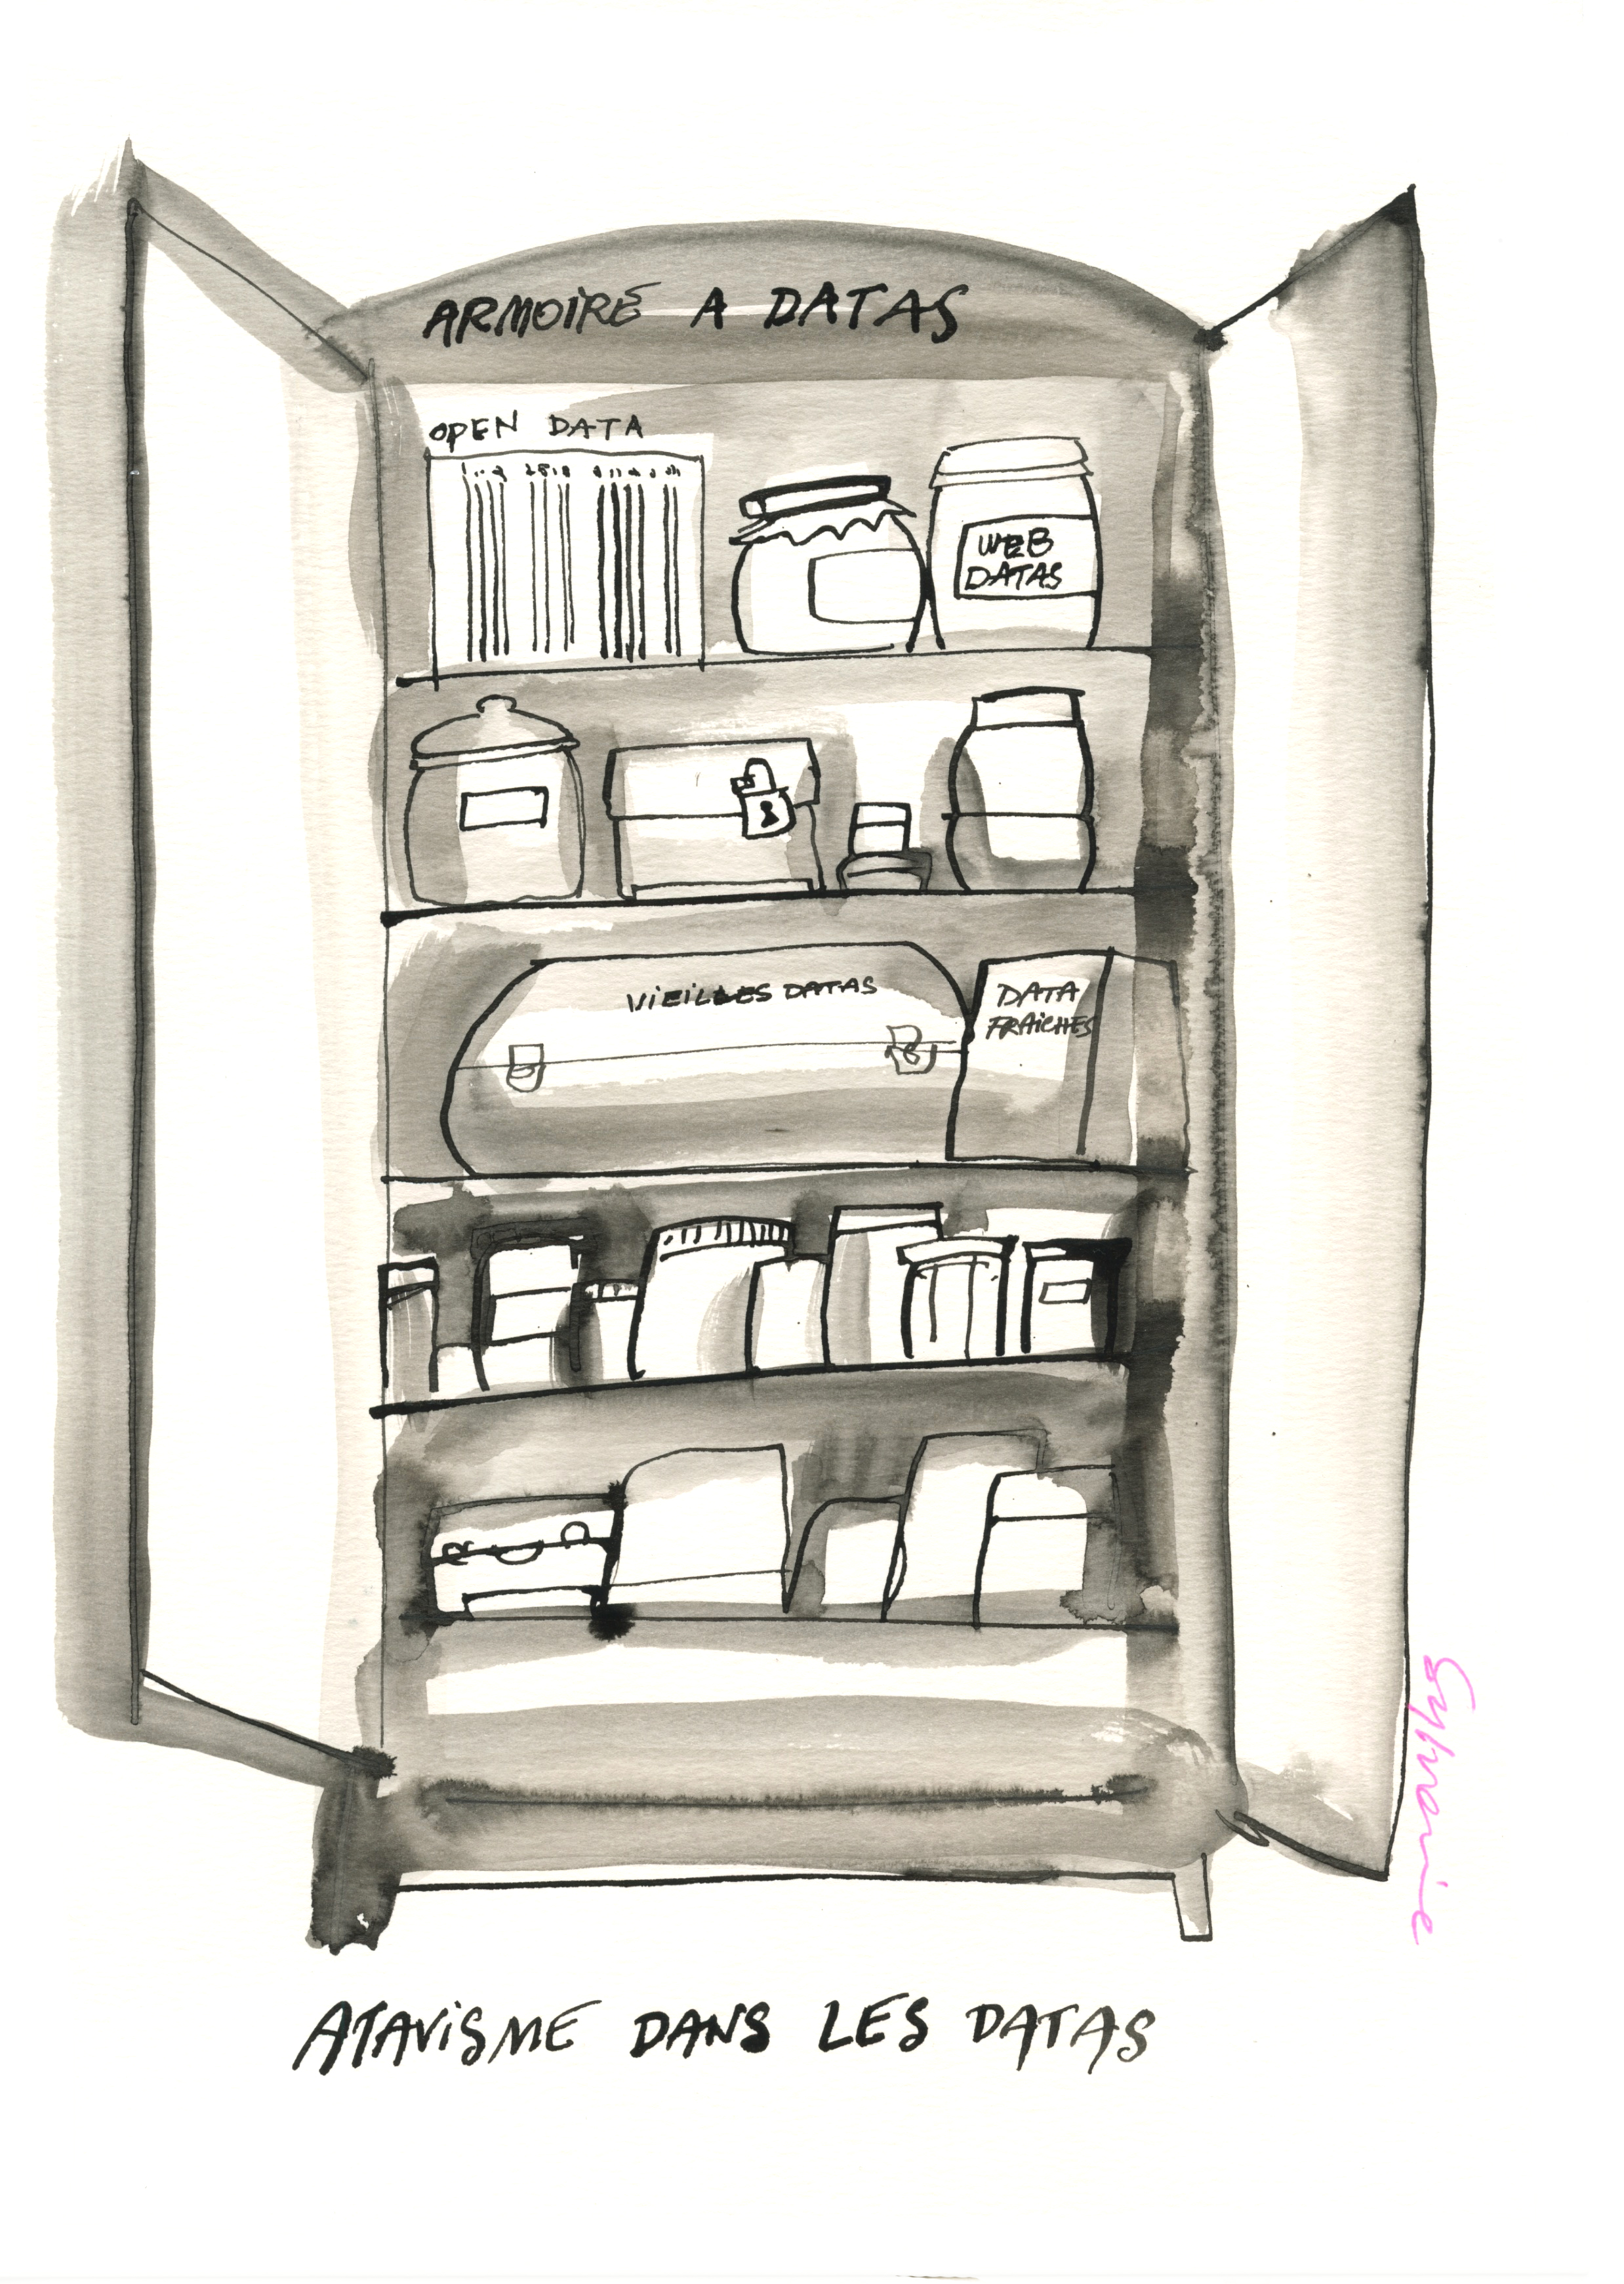 ARMOIRE A DATAS
OPEN DATA
WEB
DATAS
VIEILLES DATAS
DATA
FRAICHES
ATAVISME DANS LES DATAS
Sylvanie